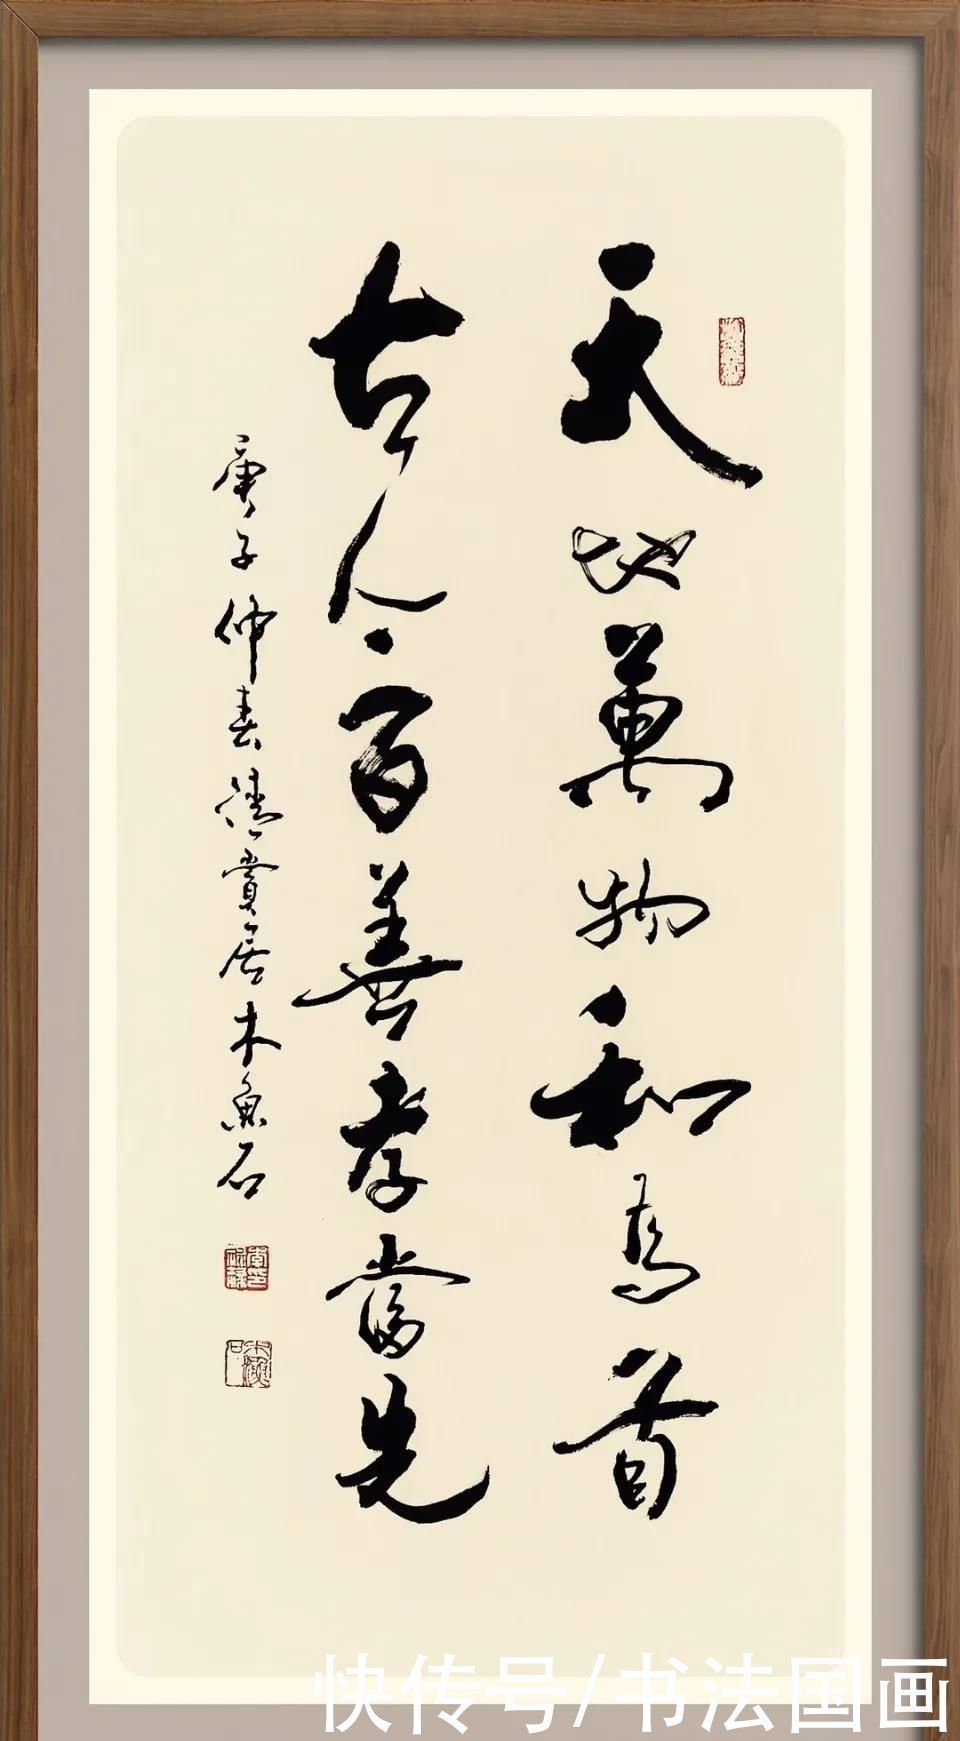 天地萬物和為首
古人百善孝當先
庚子仲春清賞居木魚石
快传号/书法国画